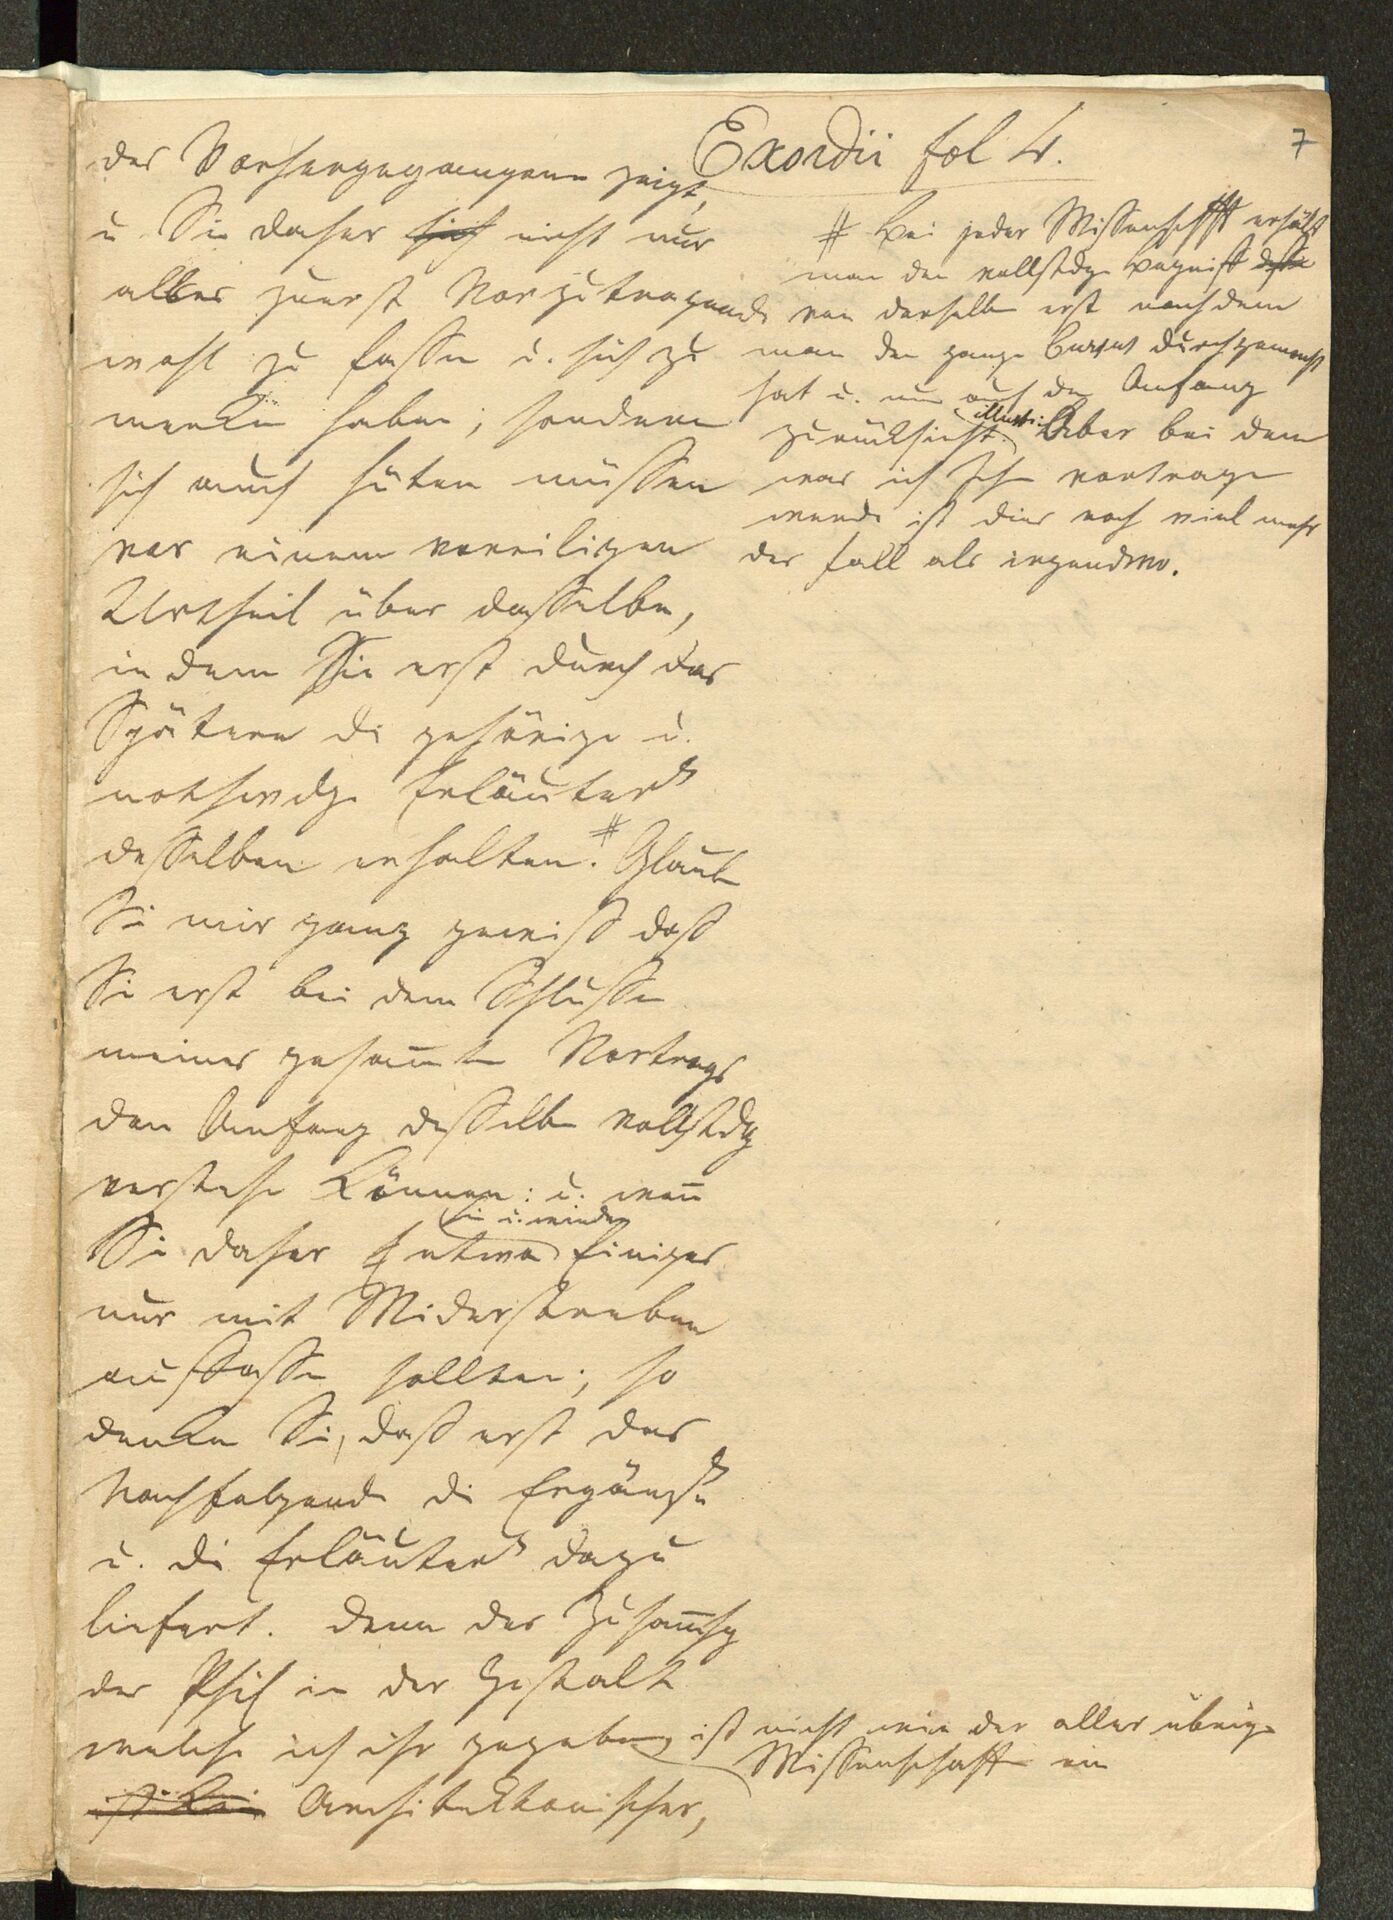 Exordii fol 4.
7
des Vorhergegangenen zeigt,
u Sie daher sich nicht nur
alles zuerst Vorzutragende
wohl zu fassen u. sich zu
merken haben; sondern
sich auch hüten müssen
vor einem voreiligen
Urtheil über dasselbe,
indem Sie erst durch das
Spätere die gehörige u.
nothwdge Erläuter
desselben erhalten. # Glaube
Sie mir ganz gewiß daß
Sie erst bei dem Schlusse
meines gesamten Vortrags
den Anfang desselbe vollstdg
verstehe können: u. wen
hin u. wieder
Sie daher etwa Einiges
nur mit Widerstreben
auffasse sollten; so
denken Sie, daß erst das
Nachfolgende die Ergänz
u. die Erläuter dazu
liefert. denn der Zusamhg
der Phil in der Gestalt
welche ich ihr gegeben, ist nicht wie der aller übrige
Wissenschafte ein
ist kein Architektonischer,
# Bei jeder Wissenschafft erhält
man den vollstdge Begriff
von derselbe erst nachdem
man den ganze Cursus durchgemacht
hat u. nun auf den Anfang
zurücksieht. illustr: Aber bei dem
was ich Ihn vortrage
werde ist dies noch viel mehr
der Fall als irgendwo.